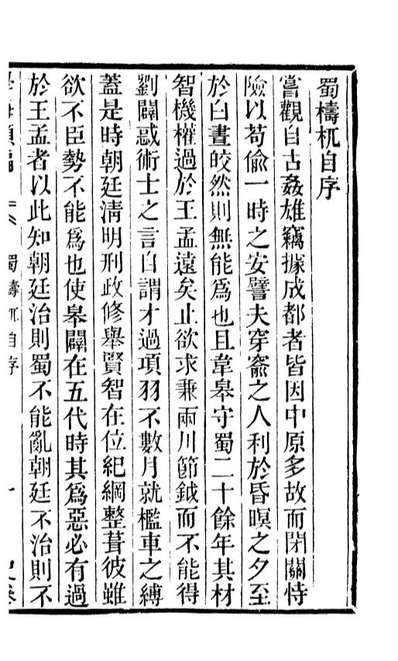 蜀檮杌自序
嘗觀自古姦雄竊據成都者皆因中原多故而閉關恃
險以苟偷一時之安譬夫穿窬之人利於昏暝之夕至
於白晝皎然則無能爲也且韋皋守蜀二十餘年其材
智機權過於王孟遠矣止欲求兼兩川節鉞而不能得
劉闢惑術士之言自謂才過項羽不數月就檻車之縛
蓋是時朝廷淸明刑政修舉賢智在位紀綱整葺彼雖
欲不臣勢不能爲也使皋闢在五代時其爲惡必有過
於王孟者以此知朝廷治則蜀不能亂朝廷不治則不
蜀檮杌自序
一